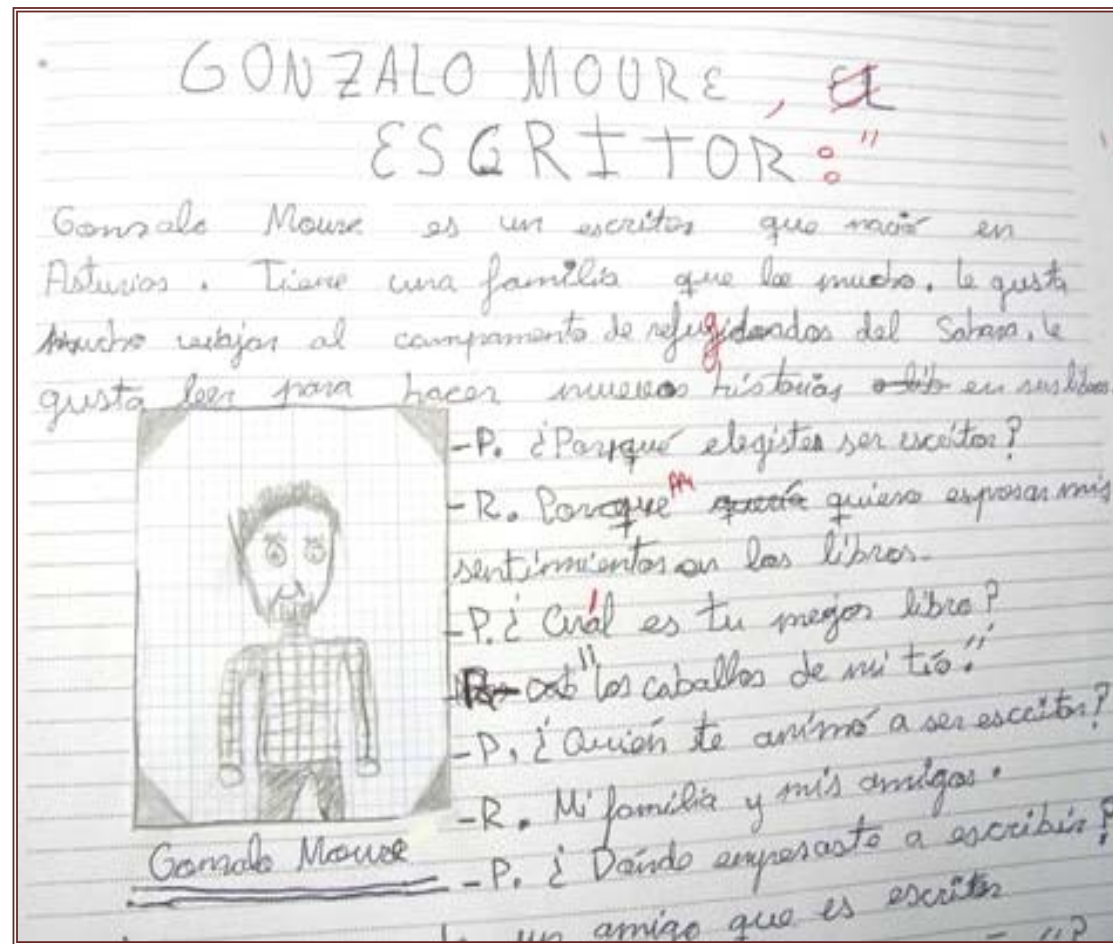 GONZALO MOURE, El
ESCRITOR:"
Gonzalo Moure es un escritor que nació en
Asturias. Tiene una familia que lee mucho. le gusta
mucho viajar al campamento de refugidandos del Sahara. le
gusta leer para hacer nuevas historias en sus libros
-P. ¿Porqué elegistes ser escritor?
-R. Porque quiero expresar mis
sentimientos en los libros.
-P. ¿Cuál es tu megor libro?
"los caballos de mi tío."
-P. ¿Quién te animó a ser escritor?
-R. Mi familia y mis amigos.
-P. ¿Dónde empesaste a escribir?
un amigo que es escritor
Gonzalo Moure